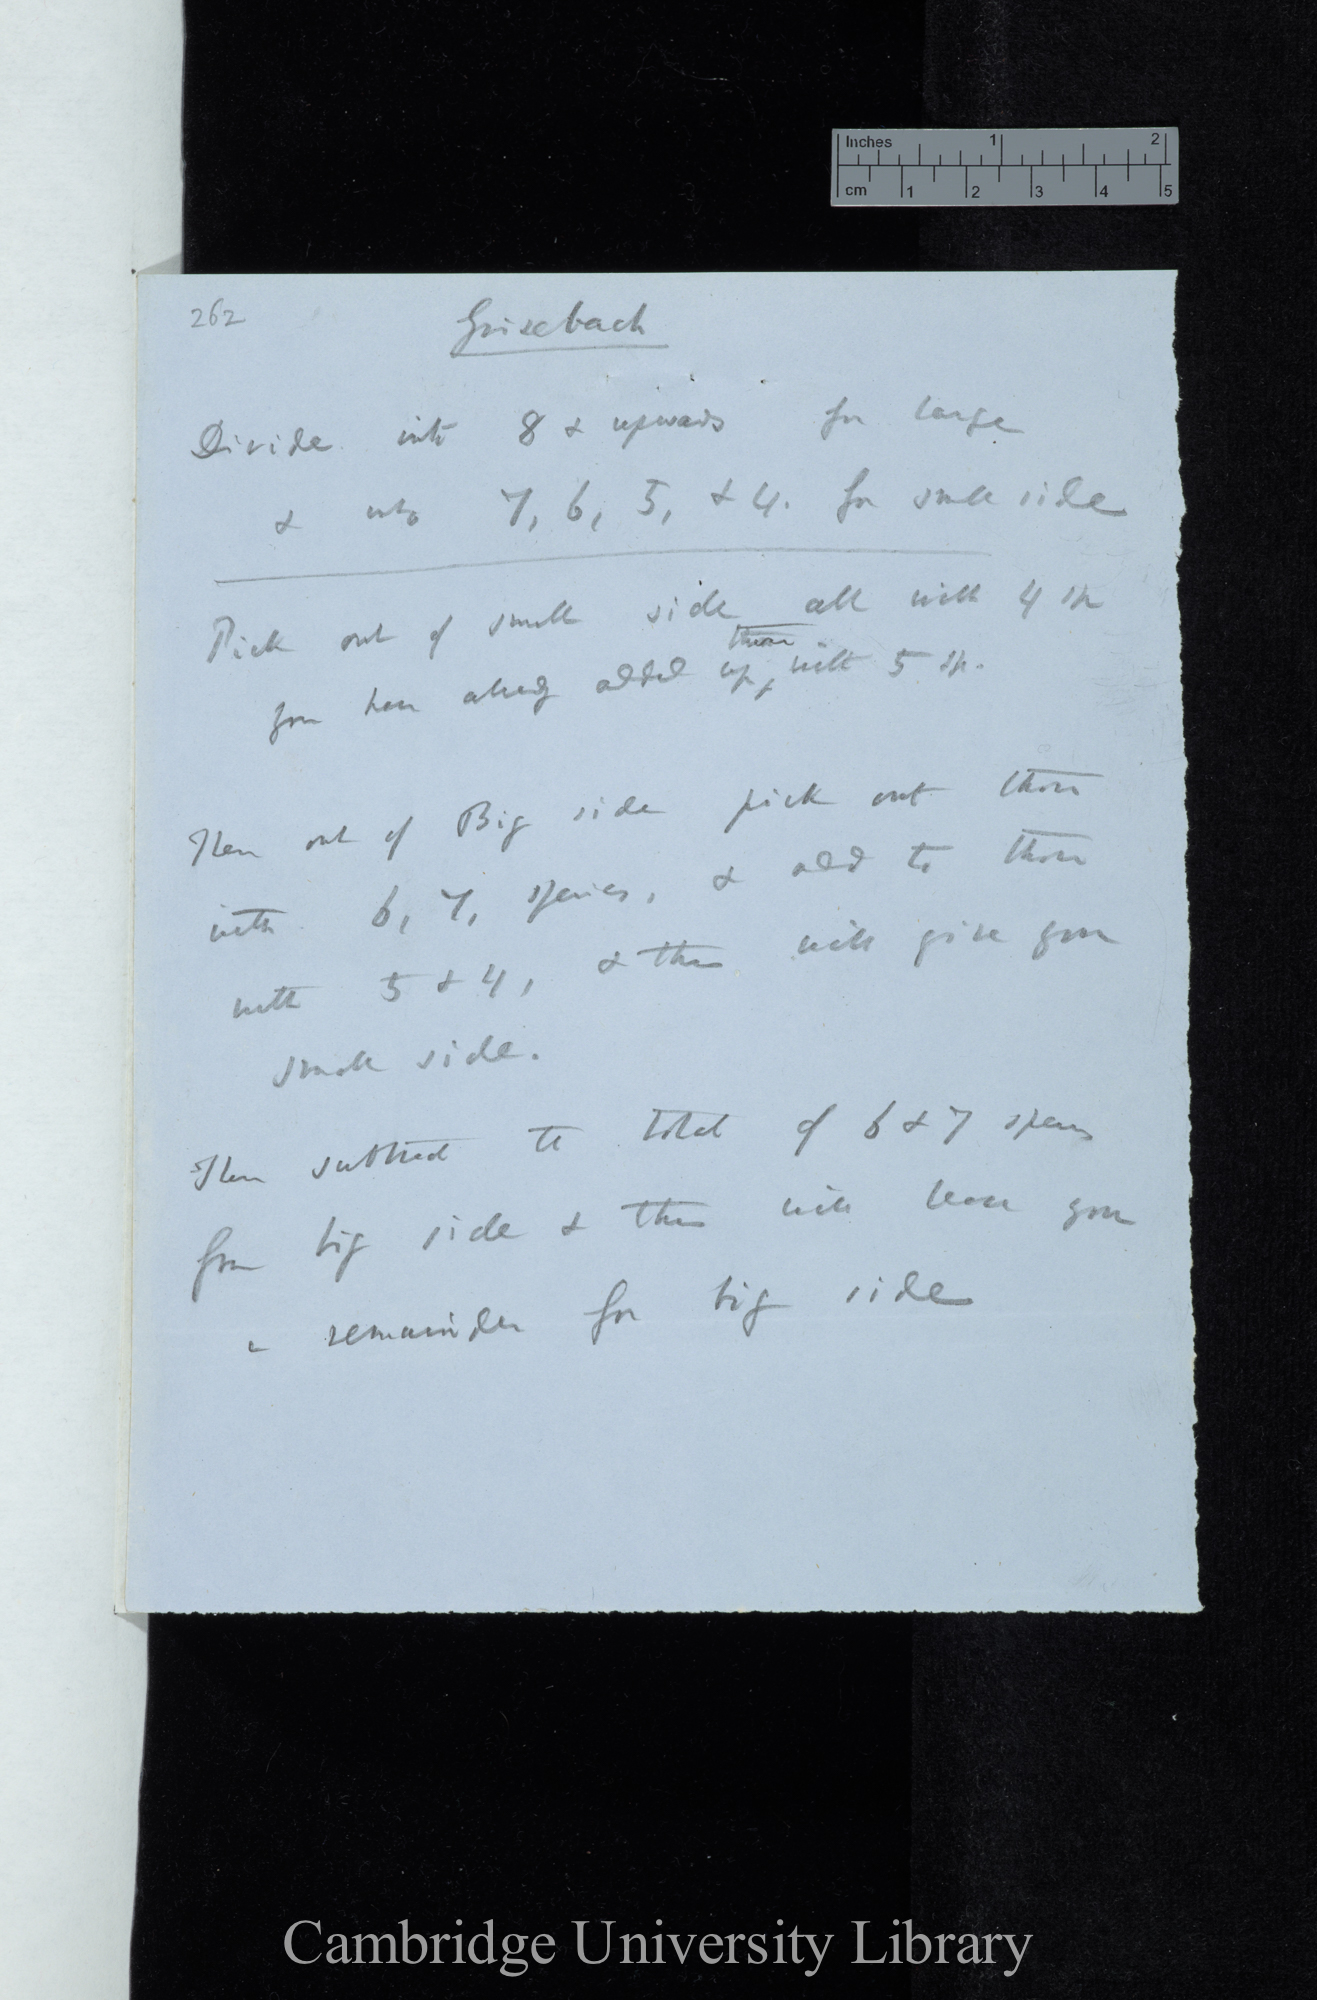 Inches 1 2
cm 1 2 3 4 5
262
Grisebach
Divide into 8 & upwards for large
& into 7, 6, 5, & 4. for small side
Pick out of small side all with 4 sp
those
you have already added up, with 5 sp.
Then out of Big side pick out those
with 6, 7, species, & add to those
with 5 & 4, & this will give you
small side.
Then subtract the total of 6 & 7 species
from big side & this will leave you
a remainder for big side
Cambridge University Library